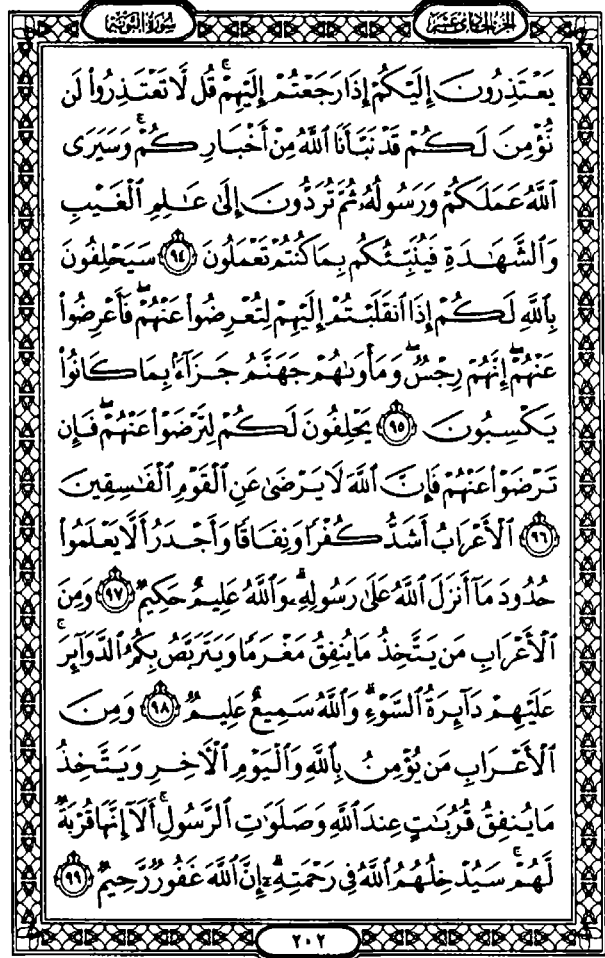 سورة التوبة الجزء الحادي عشر
يَعْتَذِرُونَ إِلَيْكُمْ إِذَا رَجَعْتُمْ إِلَيْهِمْ ۚ قُل لَّا تَعْتَذِرُوا۟ لَن
نُّؤْمِنَ لَكُمْ قَدْ نَبَّأَنَا ٱللَّهُ مِنْ أَخْبَارِكُمْ ۚ وَسَيَرَى
ٱللَّهُ عَمَلَكُمْ وَرَسُولُهُۥ ثُمَّ تُرَدُّونَ إِلَىٰ عَـٰلِمِ ٱلْغَيْبِ
وَٱلشَّهَـٰدَةِ فَيُنَبِّئُكُم بِمَا كُنتُمْ تَعْمَلُونَ ٩٤ سَيَحْلِفُونَ
بِٱللَّهِ لَكُمْ إِذَا ٱنقَلَبْتُمْ إِلَيْهِمْ لِتُعْرِضُوا۟ عَنْهُمْ ۖ فَأَعْرِضُوا۟
عَنْهُمْ ۖ إِنَّهُمْ رِجْسٌ ۖ وَمَأْوَىٰهُمْ جَهَنَّمُ جَزَآءًۢ بِمَا كَانُوا۟
يَكْسِبُونَ ٩٥ يَحْلِفُونَ لَكُمْ لِتَرْضَوْا۟ عَنْهُمْ ۖ فَإِن
تَرْضَوْا۟ عَنْهُمْ فَإِنَّ ٱللَّهَ لَا يَرْضَىٰ عَنِ ٱلْقَوْمِ ٱلْفَـٰسِقِينَ
٩٦ ٱلْأَعْرَابُ أَشَدُّ كُفْرًا وَنِفَاقًا وَأَجْدَرُ أَلَّا يَعْلَمُوا۟
حُدُودَ مَآ أَنزَلَ ٱللَّهُ عَلَىٰ رَسُولِهِۦ ۗ وَٱللَّهُ عَلِيمٌ حَكِيمٌ ٩٧ وَمِنَ
ٱلْأَعْرَابِ مَن يَتَّخِذُ مَا يُنفِقُ مَغْرَمًا وَيَتَرَبَّصُ بِكُمُ ٱلدَّوَآئِرَ ۚ
عَلَيْهِمْ دَآئِرَةُ ٱلسَّوْءِ ۗ وَٱللَّهُ سَمِيعٌ عَلِيمٌ ٩٨ وَمِنَ
ٱلْأَعْرَابِ مَن يُؤْمِنُ بِٱللَّهِ وَٱلْيَوْمِ ٱلْـَٔاخِرِ وَيَتَّخِذُ
مَا يُنفِقُ قُرُبَـٰتٍ عِندَ ٱللَّهِ وَصَلَوَٰتِ ٱلرَّسُولِ ۚ أَلَآ إِنَّهَا قُرْبَةٌ
لَّهُمْ ۚ سَيُدْخِلُهُمُ ٱللَّهُ فِى رَحْمَتِهِۦٓ ۗ إِنَّ ٱللَّهَ غَفُورٌ رَّحِيمٌ ٩٩
٢٠٢